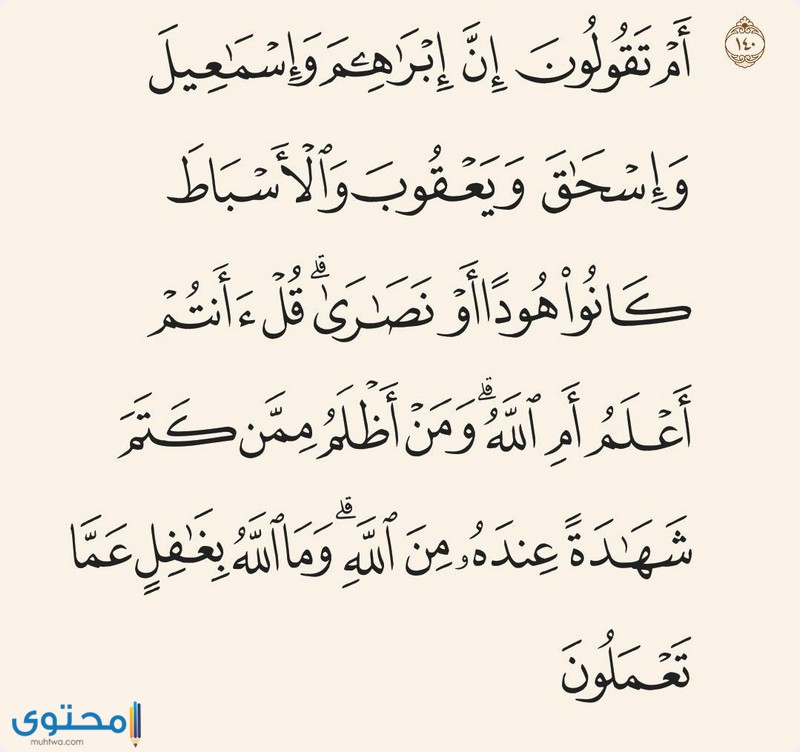 ١٤٠
أَمْ تَقُولُونَ إِنَّ إِبْرَٰهِـۧمَ وَإِسْمَـٰعِيلَ
وَإِسْحَـٰقَ وَيَعْقُوبَ وَٱلْأَسْبَاطَ
كَانُوا۟ هُودًا أَوْ نَصَـٰرَىٰ ۗ قُلْ ءَأَنتُمْ
أَعْلَمُ أَمِ ٱللَّهُ ۗ وَمَنْ أَظْلَمُ مِمَّن كَتَمَ
شَهَـٰدَةً عِندَهُۥ مِنَ ٱللَّهِ ۗ وَمَا ٱللَّهُ بِغَـٰفِلٍ عَمَّا
تَعْمَلُونَ
محتوى
muhtwa.com